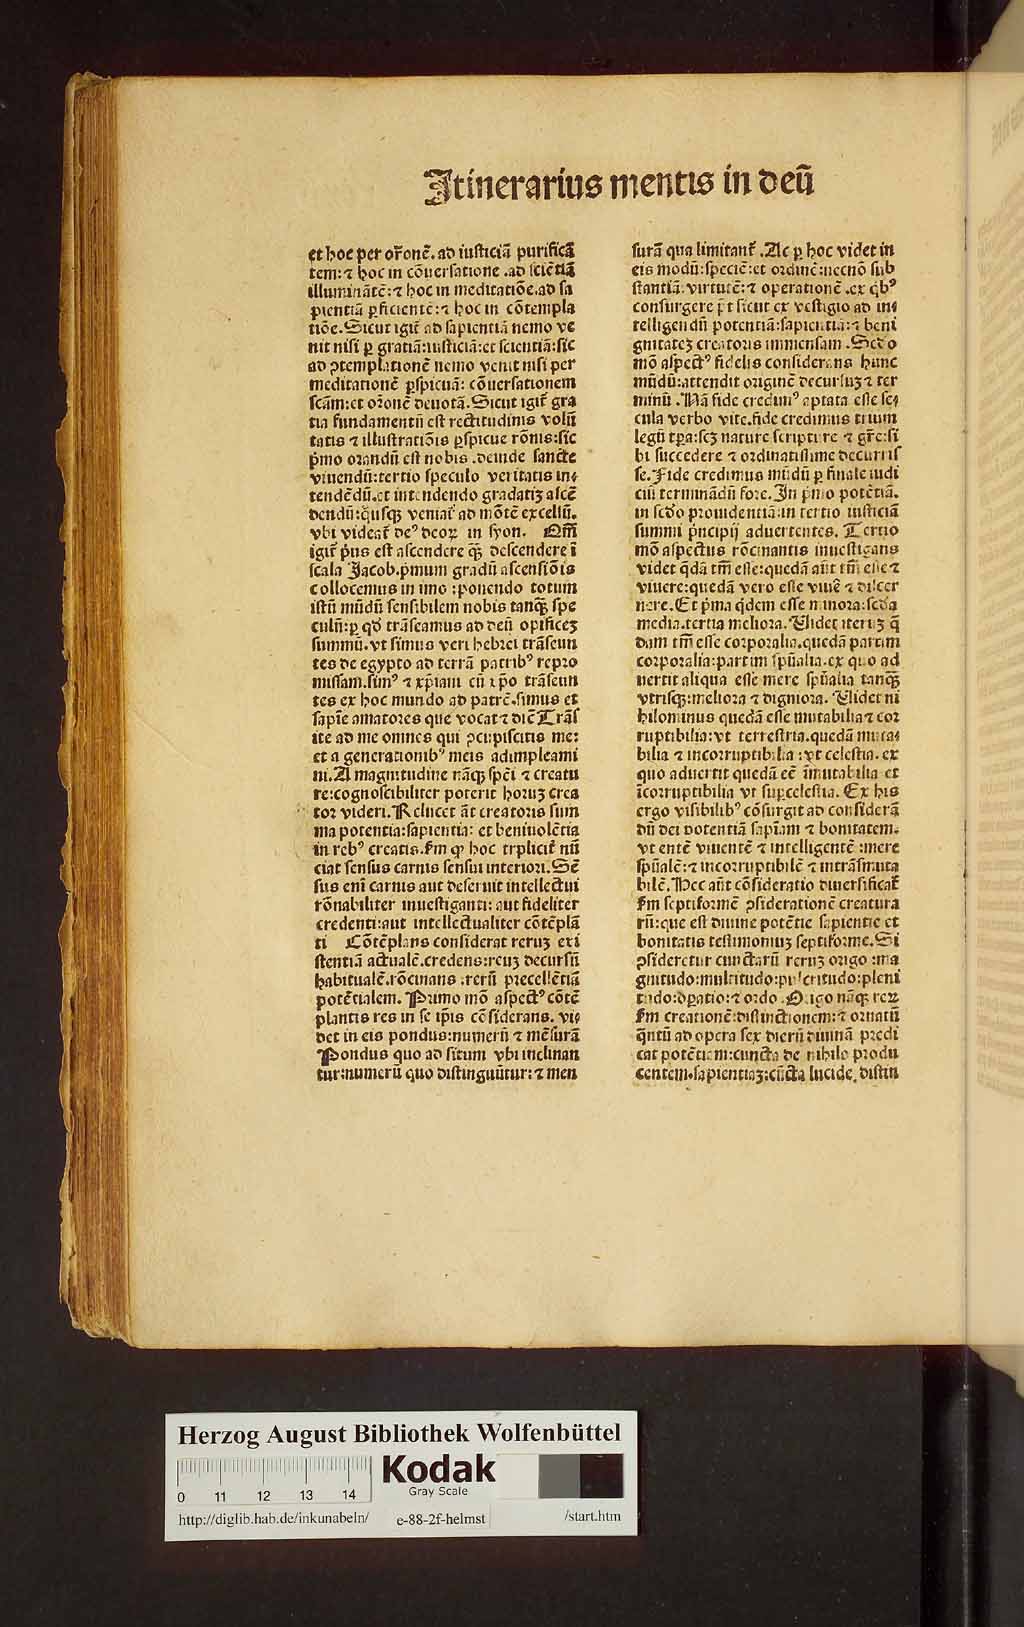 Itinerarius mentis in deū
et hoc per or̄onē. ad iusticiā purificā
tem: ⁊ hoc in cōuersatione .ad sciētiā
illuminātē: ⁊ hoc in meditatiōe.ad sa
pientiā ꝑficientē: ⁊ hoc in cōtempla
tiōe. Sicut igit᷑ ad sapientiā nemo ve
nit nisi ꝑ gratiā: iusticiā: et scientiā: sic
ad ꝯtemplationē nemo venit nisi per
meditationē ꝑspicuā: cōuersationem
scām: et or̄onē deuotā. Sicut igit᷑ gra
tia fundamentū est rectitudinis volū
tatis ⁊ illustratiōis ꝑspicue rōnis: sic
p̄mo orandū est nobis .deinde sancte
viuendū: tertio speculo veritatis in⸗
tendēdū. et intendendo gradatiꝫ ascē
dendū: q̄usqꝫ veniat᷑ ad mōtē excelsū.
vbi videat᷑ deꝰ deoꝝ in syon. Qm̄
igit᷑ p̄us est ascendere qꝫ̄ descendere ī
scala Jacob. p̄mum gradū ascensiōis
collocemus in imo : ponendo totum
istū mūdū sensibilem nobis tanqꝫ̄ spe
culū: ꝑ qd̄ trāseamus ad deū opificeꝫ
summū. vt simus veri hebrei trāseun
tes de egypto ad terrā patribꝰ repro
missam. simꝰ ⁊ xp̄iani cū xp̄o trāseun
tes ex hoc mundo ad patrē. simus et
sapīe amatores que vocat ⁊ dic̄ Trās
ite ad me omnes qui ꝯcupiscitis me:
et a generationibꝰ meis adimpleami
ni. A magnitudine nāqꝫ spēi ⁊ creatu
re: cognoscibiliter poterit horuꝫ crea
tor videri. Relucet āt creatoris sum
ma potentia: sapientia: et beniuolētia
in rebꝰ creatis. fm̄ ꝙ hoc tripliciť nū
ciat sensus carnis sensui interiori. Sē
sus eni carnis aut deseruit intellectui
rōnabiliter inuestiganti: aut fideliter
credenti: aut intellectualiter cōtēplā
ti Cōtēplans considerat reruꝫ exi
stentiā actualē. credens: reuꝫ decursū
habitualē. rōcinans : rerū precellētiā
potētialem. Primo mō aspectꝰ cōtē
plantis res in se ip̄is cōsiderans. vi⸗
det in eis pondus: numerū ⁊ mēsurā
Pondus quo ad situm vbi inclinan
tur: numerū quo distinguūtur: ⁊ men
surā qua limitant᷑ . Ac ꝑ hoc videt in
eis modū: speciē: et ordinē: necnō sub
stantiā: virtutē: ⁊ operationē .ex qbꝰ
consurgere p̄t sicut ex vestigio ad in⸗
telligendū potentiā: sapientiā: ⁊ beni
gnitateꝫ creatoris immensam . Scd̄o
mō aspectꝰ fidelis considerans hunc
mūdū: attendit originē decursuꝫ ⁊ ter
minū . Nā fide credimꝰ aptata esse se⸗
cula verbo vite. fide credimus trium
legū tꝑa: scꝫ nature scripture ⁊ gr̄e: si
bi succedere ⁊ ordinatissime decurris
se. Fide credimus mūdū ꝑ finale iudi
ciū terminādū fore. In p̄mo potētiā.
in scd̄o prouidentiā: in tertio iusticiā
summi p̄ncipij aduertentes. Tertio
mō aspectus rōcinantis inuestigans
videt q̄dā tm̄ esse: quedā aūt tm̄ esse ⁊
viuere: quedā vero esse viuē ⁊ discer
nere. Et p̄ma q̄dem esse minora: scd̄a
media. tertia meliora. Videt iteruꝫ q̄
dam tm̄ esse corporalia. quedā partim
corporalia: partim spūalia. ex quo ad
uertit aliqua esse mere spūalia tanqꝫ̄
vtrisqꝫ: meliora ⁊ digniora. Videt ni
hilominus quedā esse mutabilia ⁊ cor
ruptibilia: vt terrestria. quedā muta⸗
bilia ⁊ incorruptibilia : vt celestia. ex
quo aduertit quedā eē īmutabilia et
īcorruptibilia vt suꝑcelestia. Ex his
ergo visibilibꝰ cōsurgit ad considerā
dū dei potentiā sapīam ⁊ bonitatem.
vt entē viuentē ⁊ intelligentē : mere
spūalē: ⁊ incorruptibilē ⁊ intrāsmuta
bilē. Hec aūt cōsideratio diuersificat᷑
fm̄ septiformē ꝯsiderationē creatura
rū: que est diuine potētie sapientie et
bonitatis testimoniuꝫ septiforme. Si
ꝯsideretur cunctarū reruꝫ origo : ma
gnitudo: multitudo: pulcritudo: pleni
tudo: oꝑatio: ⁊ ordo . Origo nāqꝫ reꝝ
fm̄ creationē: distinctionem: ⁊ ornatū
q̄ntū ad opera sex dierū diuinā predi
cat potētiam: cuncta de nihilo produ
centem. sapientiaꝫ: cūcta lucide distin
Herzog August Bibliothek Wolfenbüttel
0 11 12 13 14
Kodak
Gray Scale
http://diglib.hab.de/inkunabeln/ e-88-2f-helmst /start.htm